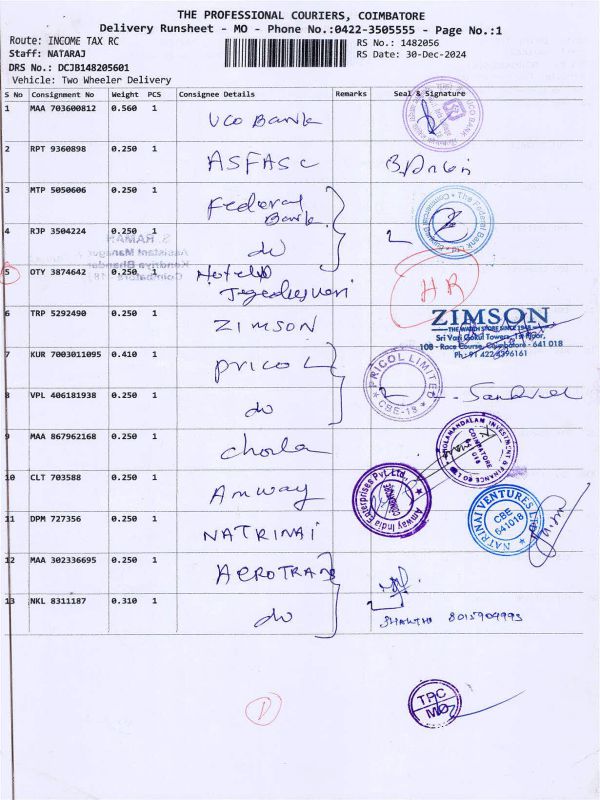 THE PROFESSIONAL COURIERS, COIMBATORE
Delivery Runsheet - MO - Phone No.:0422-3505555 - Page No.:1
Route: INCOME TAX RC
RS No.: 1482056
Staff: NATARAJ
RS Date: 30-Dec-2024
DRS No.: DCJB148205601
Vehicle: Two Wheeler Delivery
S No Consignment No Weight PCS Consignee Details Remarks Seal & Signature
1 MAA 703600812 0.560 1 UCO Bank
UCO BANK
2 RPT 9360898 0.250 1 ASFASC
3 MTP 5050606 0.250 1 Federal Bank
The Federal Bank Ltd
4 RJP 3504224 0.250 1 do
S. RAMAN
Assistant Manager
Kendriya Bhandar
Coimbatore - 18
5 OTY 3874642 0.250 1 Hotel
HR
6 TRP 5292490 0.250 1 ZIMSON
ZIMSON
THE WATCH STORE SINCE 1948
Sri Vari Gokul Towers, 1st Floor,
108 - Race Course, Coimbatore - 641 018
Ph: 91 422 4396161
7 KUR 7003011095 0.410 1 Pricol
PRICOL LIMITED
CBE-18
8 VPL 406181938 0.250 1 do
9 MAA 867962168 0.250 1 Chola
CHOLAMANDALAM INVESTMENT & FINANCE CO LTD
COIMBATORE
641 018
10 CLT 703588 0.250 1 Amway
Amway India Enterprises Pvt. Ltd.
11 DPM 727356 0.250 1 NATRINAI
NATRINAI VENTURES
CBE
641018
12 MAA 302336695 0.250 1 AEROTRANS
13 NKL 8311187 0.310 1 do
8015904993
TPC
MO